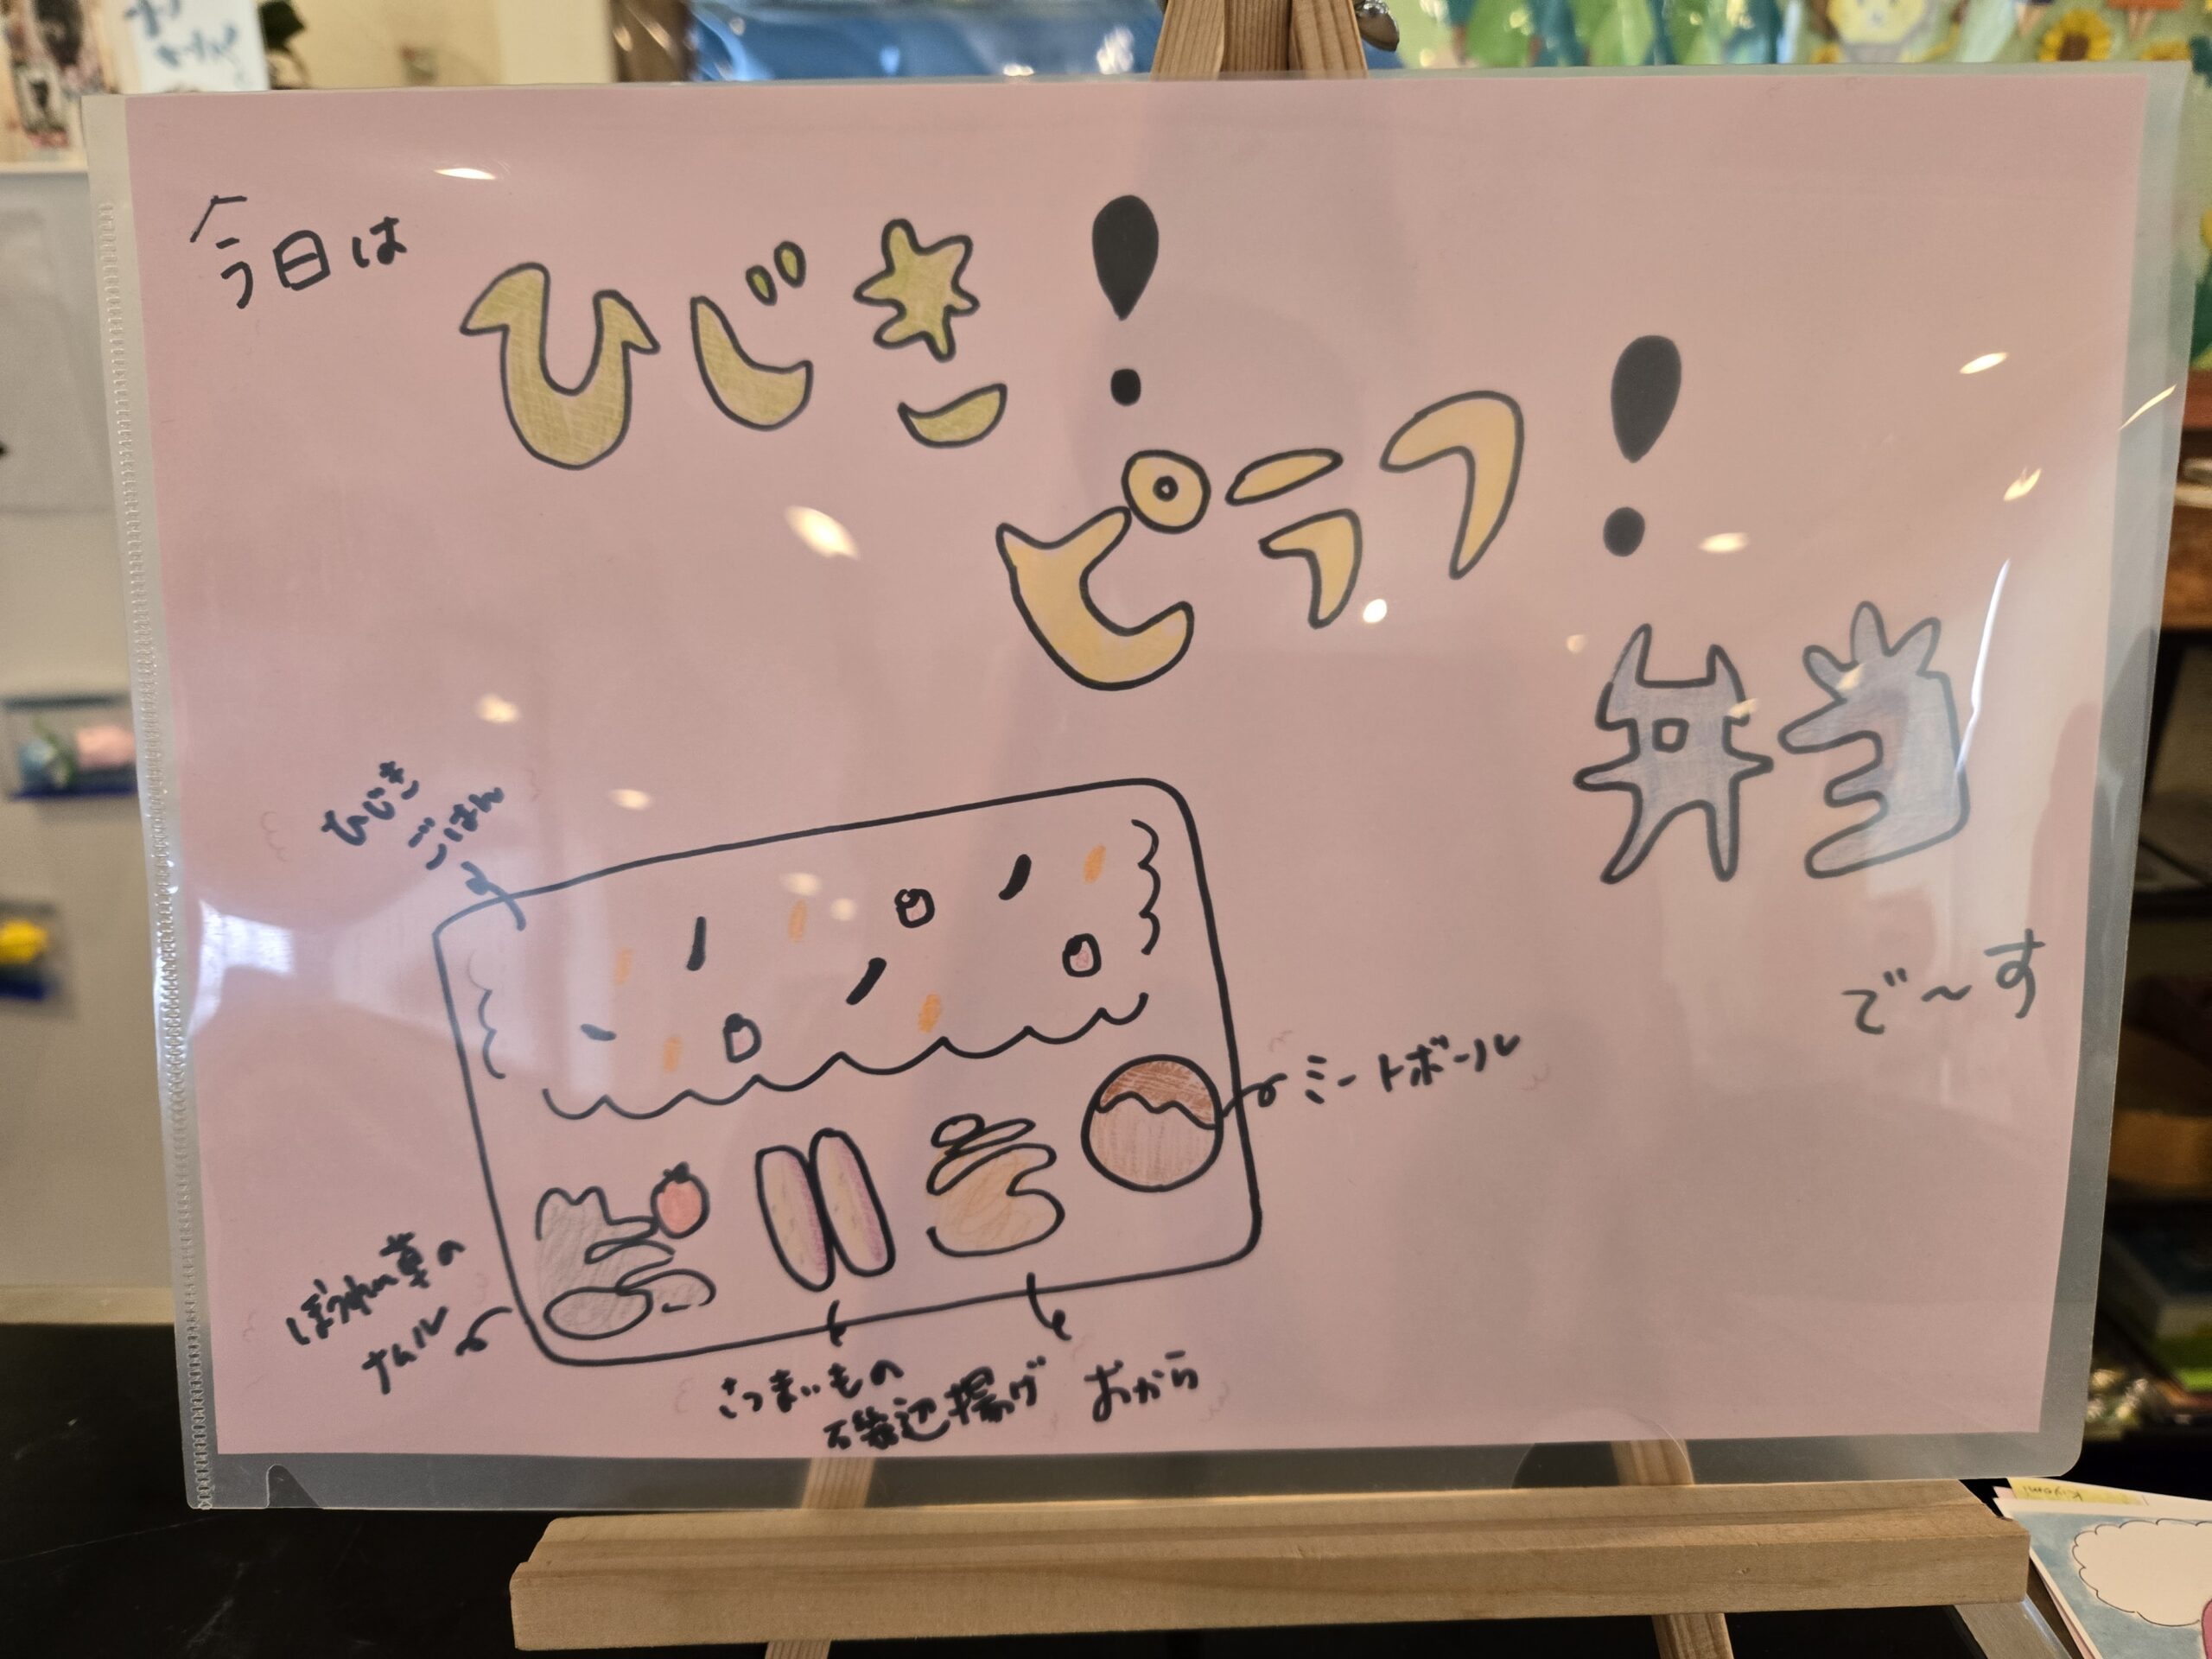 今日は
ひじき!
ピラフ!
弁当
で～す
ひじき
ごはん
ミートボール
ほうれん草の
ナムル
さつまいもの
磯辺揚げ
おから